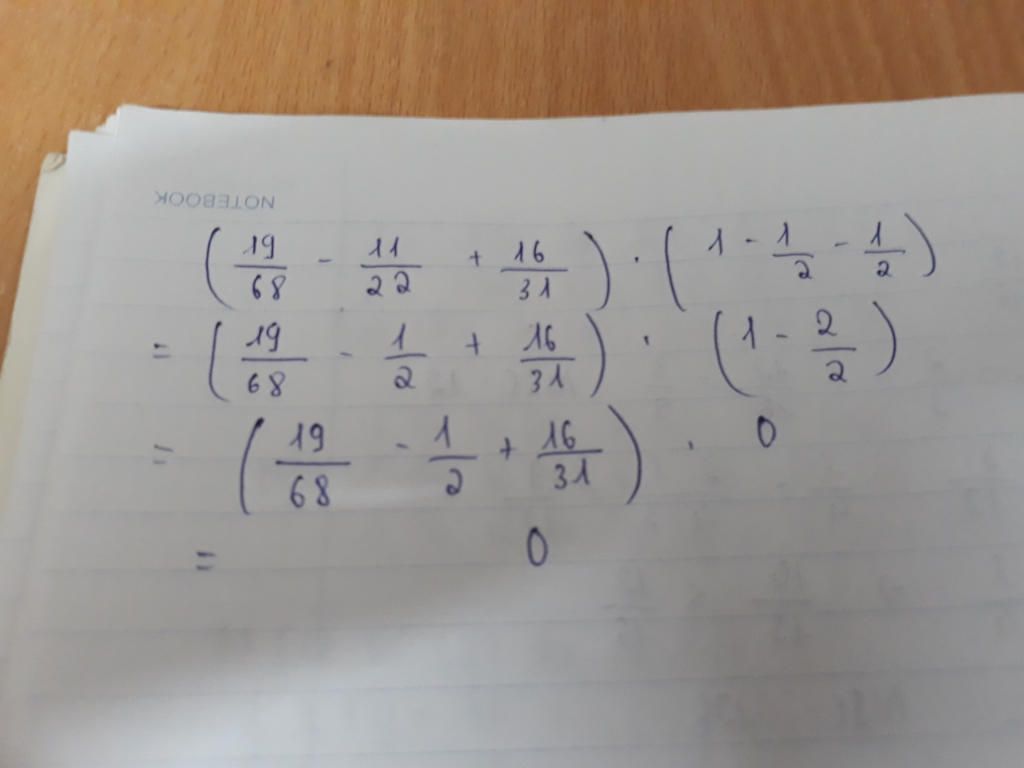 NOTEBOOK
( 19/68 - 11/22 + 16/31 ) . ( 1 - 1/2 - 1/2 )
= ( 19/68 - 1/2 + 16/31 ) . ( 1 - 2/2 )
= ( 19/68 - 1/2 + 16/31 ) . 0
= 0